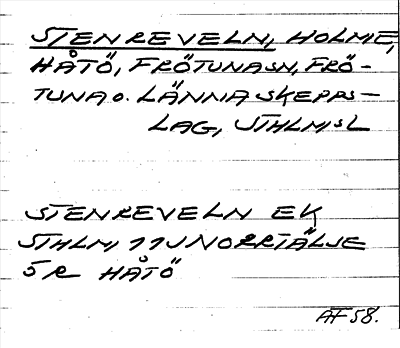 STENREVELN, HOLME,
HÅTÖ, FRÖTUNASN, FRÖ-
TUNA O. LÄNNA SKEPPS-
LAG, STHLMSL
STENREVELN EK
STHLM, 11J NORRTÄLJE
5R HÅTÖ
AF 58.